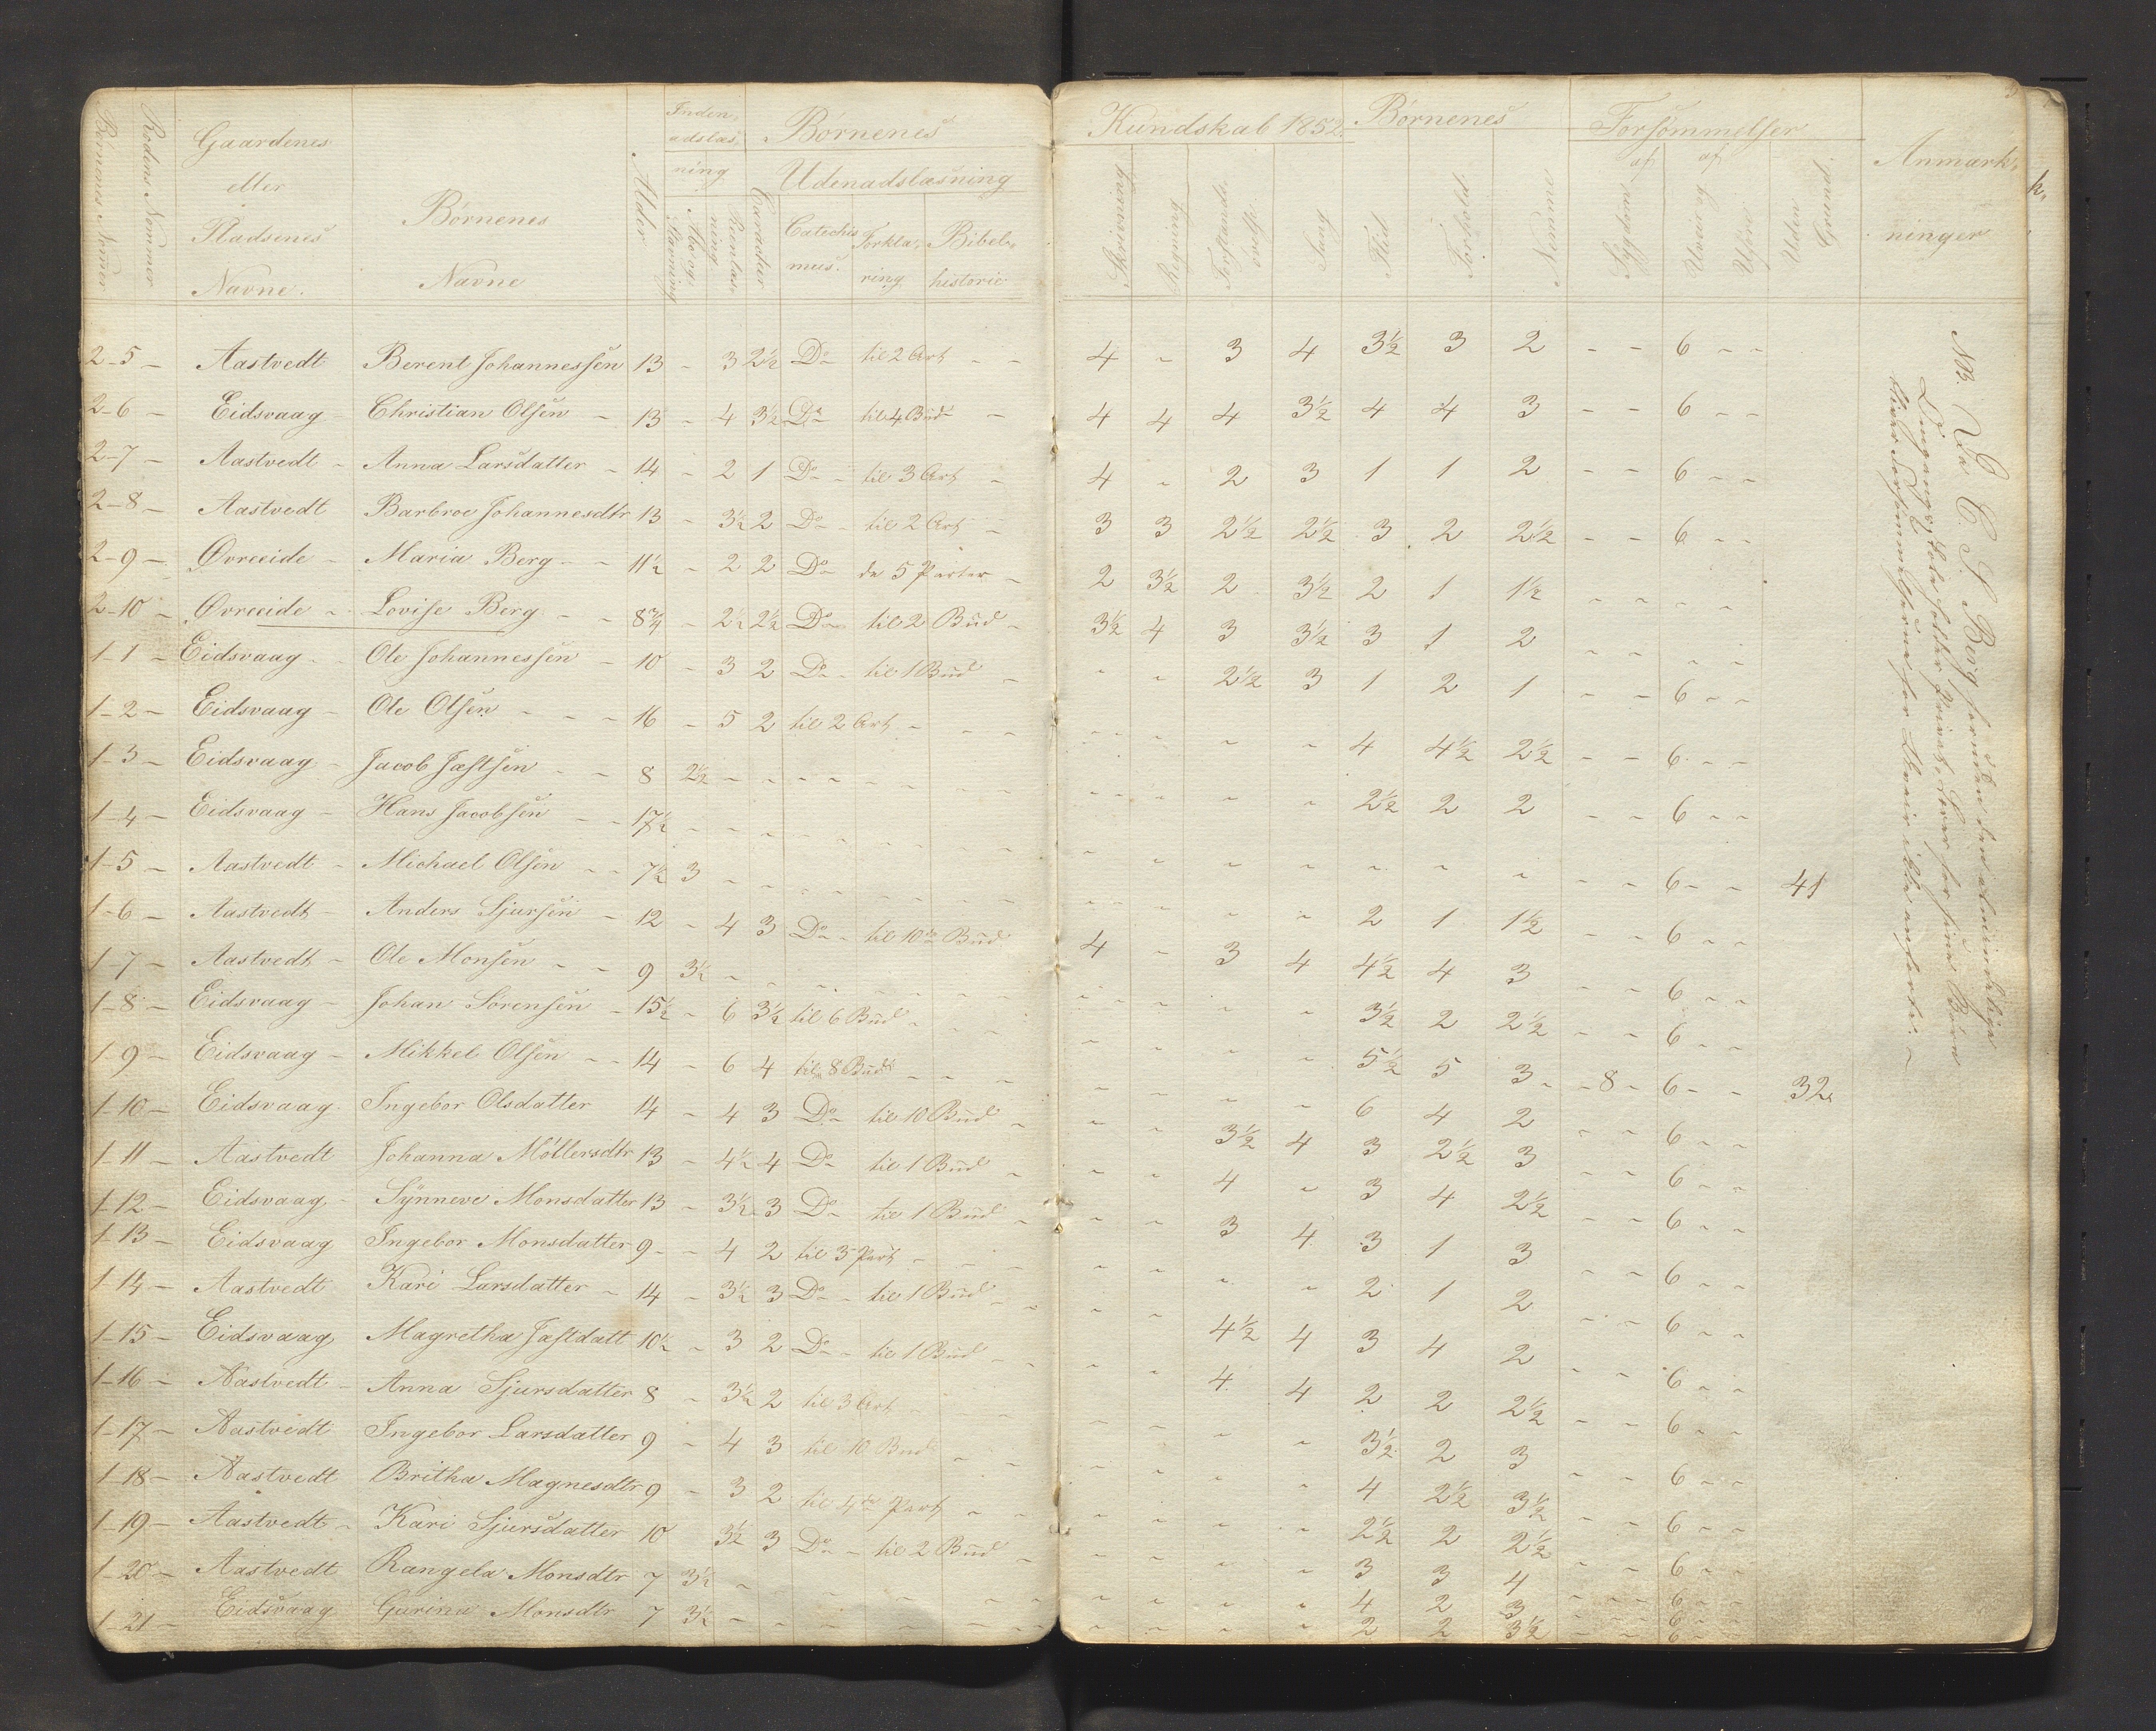 Børnenes Nømer
Rodens Nømmer
Gaardenes
eller
Pladsenes
Navne.
Børnenes
Navne
Alder
Inden-
adslæs-
ning
Abc og
Stavning
Reenlæs-
ning.
Børnenes
Udenadslæsning
Catechis
mus.
Forkla-
ring
Bibel-
historie
Kundskab 1852
Skrivning
Regning
Forstands-
Sang
Børnenes
Flid
Forhold.
Nemme
Forsømmelser
af Sygdom
af Uveir og Uføre
Uden Grund.
Anmærk-
ninger
2-5 - Aastvedt Berent Johannessen 13 - 3 2½ Do til 2 Art - - 4 - 3 4 3½ 3 2 - - 6 - -
2-6 - Eidsvaag - Christian Olsen - 13 - 4 3½ Do til 4 Bud - 4 4 4 3½ 4 4 3 - - 6 - -
2-7 - Aastvedt - Anna Larsdatter - 14 - 2 1 Do - til 3 Art - 4 - 2 3 1 1 2 - - 6 - -
2-8 - Aastvedt Barbroe Johannesdtr 13 - 3½ 2 Do - til 2 Art - 3 3 2½ 2½ 3 2 2½ - - 6 - -
2-9 - Øvreeide - Maria Berg - - 11½ - 2 2 Do de 5 Parter - 2 3½ 2 3½ 2 1 1½ - - - -
2-10 - Øvreeide - Lovise Berg - - 8¾ - 2½ 2½ Do til 2 Bud - 3½ 4 3 3½ 3 1 2 - - - -
1-1 - Eidsvaag - Ole Johannessen - 10 - 3 2 Do - til 1 Bud - - - 2½ 3 1 2 1 - - 6 - -
1-2 - Eidsvaag - Ole Olsen - - - 16 - 5 2 til 2 Art - - - - - - - 4 4½ 2½ - - 6 - -
1-3 - Eidsvaag - Jacob Jæstsen - - 8 2½ - - - - - - - - - - - 2½ 2 2 - - 6 - -
1-4 - Eidsvaag - Hans Jacobsen - - 17½ - - - - - - - - - - - - - - - - 6 - - 41
1-5 - Aastvedt - Michael Olsen - - 7½ 3 - - - - - - - - - - 2 1 1½ - - 6 - -
1-6 - Aastvedt - Anders Sjursen - 12 - 4 3 Do - til 10de Bud 4 - 3 4 4½ 4 3 - - 6 - -
1-7 - Aastvedt - Ole Monsen - - 9 3½ - - - - - - - - - - 3½ 2 2½ - - 6 - -
1-8 - Eidsvaag - Johan Sørensen - 15½ - 6 3½ til 6 Bud - - - - - - - 5½ 5 3 - - 8 - 6 - - 32
1-9 - Eidsvaag - Mikkel Olsen - - 14 - 6 4 til 8 Bud - - - - - - - 6 4 2 - - 6 - -
1-10 - Eidsvaag - Ingebor Olsdatter 14 - 4 3 Do - til 10 Bud - - - 3½ 4 3 2½ 3 - - 6 - -
1-11 - Aastvedt Johanna Möllersdtr 13 - 4½ 4 Do til 1 Bud - - - 4 - 3 4 2½ - - 6 - -
1-12 - Eidsvaag - Synneve Monsdatter 13 - 3½ 3 Do - til 1 Bud - - - 3 4 3 1 3 - - 6 - -
1-13 - Eidsvaag Ingebor Monsdatter 9 - - 4 2 til 3 Part - - - - - - - 2 1 2 - - 6 - -
1-14 - Aastvedt Kari Larsdatter - 14 - 3½ 3 Do - til 1 Bud - - - - 4½ 4 3 4 2 - - 6 - -
1-15 - Eidsvaag Magretha Jæstdatt 10½ - 3 2 Do - til 1 Bud - - - - 4 4 2 2 2½ - - 6 - -
1-16 - Aastvedt - Anna Sjursdatter 8 - 3½ 2 til 3 Art - - - - - - - 3½ 2 3 - - 6 - -
1-17 - Aastvedt Ingebor Larsdatter 9 - 4 3 til 10 Bud - - - - - - - 4 2½ 3½ - - 6 - -
1-18 - Aastvedt Britha Magnesdtr 9 - 3 2 til 4de Part - - - - - - - 2½ 2 2½ - - 6 - -
1-19 - Aastvedt - Kari Sjursdatter 10 3½ 3 Do - til 2 Bud - - - - - 3 3 4 - - 6 - -
1-20 - Aastvedt Rangela Monsdtr 7 3½ - - - - - - - - - - 4 2 3 - - 6 - -
1-21 - Eidsvaag Gurina Monsdtr 7 3½ - - - - - - - - - - 2 2 3½ - - 6 - -
NB. Da C S. Berg foruden den almindelige
Omgangsskole holder privat Lærer for sine Børn
bliver Forsømmelserne for disse ikke anførte. -